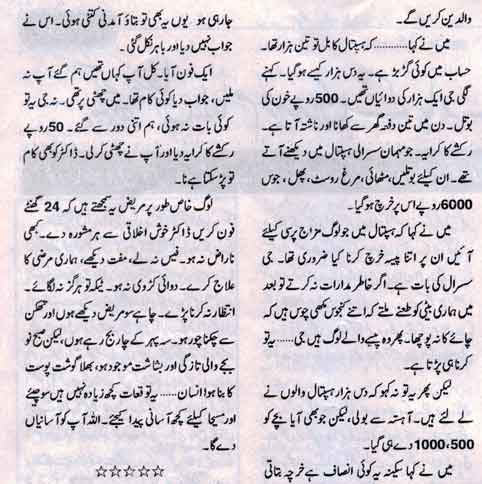 والدین کریں گے۔
میں نے کہا............ کہ ہسپتال کا بل تو تین ہزار تھا۔
حساب میں کوئی گڑبڑ ہے۔ یہ دس ہزار کیسے ہوگیا۔ کہنے
لگی جی ایک ہزار کی دوائیاں تھیں۔ 500 روپے خون کی
بوتل۔ دن میں تین دفعہ گھر سے کھانا اور ناشتہ آتا ہے۔
رکشے کا کرایہ۔ جو مہمان سسرالی ہسپتال میں دیکھنے آتے
تھے۔ ان کیلئے بوتلیں، مٹھائی، مرغ روسٹ، پھل، جوس
6000 روپے اس پر خرچ ہوگیا۔
میں نے کہا کہ ہسپتال میں جو لوگ مزاج پرسی کیلئے
آئیں ان پر اتنا پیسہ خرچ کرنا کیا ضروری تھا۔ جی
سسرال کی بات ہے۔ اگر خاطر مدارات نہ کرتے تو بعد
میں ہماری بیٹی کو طعنے ملتے کہ اتنے کنجوس مکھی چوس ہیں کہ
چائے کا نہ پوچھا۔ پھر وہ پیسے والے لوگ ہیں جی...... یہ تو
کرنا ہی پڑتا ہے۔
لیکن پھر یہ تو نہ کہو کہ دس ہزار ہسپتال والوں نے
لے لئے ہیں۔ آہستہ سے بولی، لیکن جو بھی آیا بچے کو
500، 1000 دے ہی گیا۔
میں نے کہا سکینہ یہ کوئی انصاف ہے خرچہ بتاتی
جارہی ہو یوں یہ بھی تو بتاؤ آمدنی کتنی ہوئی۔ اس نے
جواب نہیں دیا اور باہر نکل گئی۔
ایک فون آیا۔ کل آپ کہاں تھیں ہم گئے آپ نہ
ملیں، جواب دیا کوئی کام تھا۔ میں چھٹی پر تھی۔ نہ جی یہ تو
کوئی بات نہ ہوئی، ہم اتنی دور سے گئے۔ 50 روپے
رکشے کا کرایہ دیا اور آپ نے چھٹی کرلی۔ ڈاکٹر کو بھی کام
تو پڑ سکتا ہے نا۔
لوگ خاص طور پر مریض یہ سمجھتے ہیں کہ 24 گھنٹے
فون کریں ڈاکٹر خوش اخلاقی سے ہر مشورہ دے۔ کبھی
ناراض نہ ہو۔ فیس نہ لے، مفت دیکھے، ہماری مرضی کا
علاج کرے۔ دوائی کڑوی نہ ہو۔ ٹیکہ تو ہرگز نہ لگائے۔
انتظار نہ کرنا پڑے۔ چاہے سو مریض دیکھے ہوں اور تھکن
سے چکنا چور ہو۔ سہ پہر کے چار بج رہے ہوں، لیکن صبح نو
بجے والی تازگی اور بشاشت موجود ہو، بھلا گوشت پوست
کا بنا ہوا انسان...... یہ توقعات کچھ زیادہ نہیں ہیں سوچئے
اور مسیحا کیلئے کچھ آسانی پیدا کیجئے۔ اللہ آپ کو آسانیاں
دے گا۔
☆☆☆☆☆